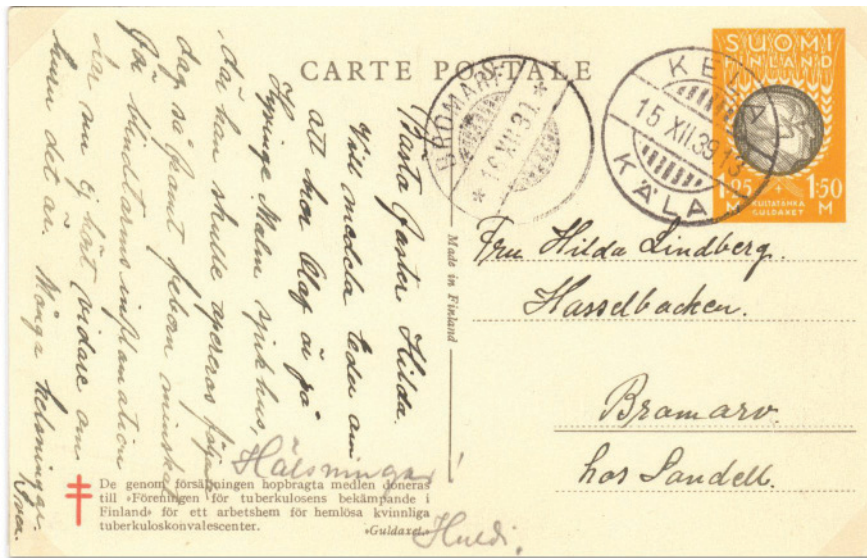 CARTE POSTALE
SUOMI
FINLAND
1.25 + 1.50
M M
KULTATÄHKÄ
GULDAXET
KELA
15 XII.39.13
KÄLA
BROMARF
* 16.XII.39. *
Made in Finland
Fru Hilda Lindberg.
Hasselbacken.
Bromarv.
hos Sandell.
Bästa Faster Hilda.
Vill meddela Eder om
att hos Olof är på
Hyvinge Malm sjukhus,
där han skulle opereras följande
dag, så framt febern minskar
för blindtarmsinflamation
har nu ej hört vidare om
hurn det är. Många helsningar.
Svea.
Hälsningar
Huldi.
De genom försäljningen hopbragta medlen doneras
till »Föreningen för tuberkulosens bekämpande i
Finland» för ett arbetshem för hemlösa kvinnliga
tuberkuloskonvalescenter. »Guldaxet.»